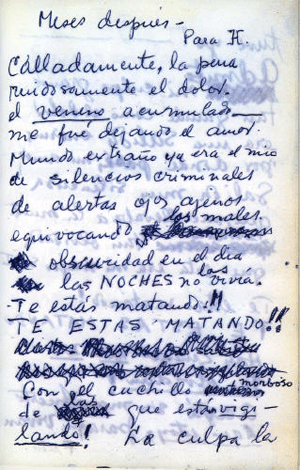 Meses después-
Para H.
Calladamente, la pena
ruidosamente el dolor.
el veneno acumulado
me fue dejando el amor.
Mundo extraño ya era el mío
de silencios criminales
de alertas ojos ajenos
equivocando los males.
obscuridad en el día
las NOCHES no las vivía.
-Te estás matando!!
TE ESTAS MATANDO!!
Con el cuchillo morboso
de las que están vigi-
lando! La culpa la